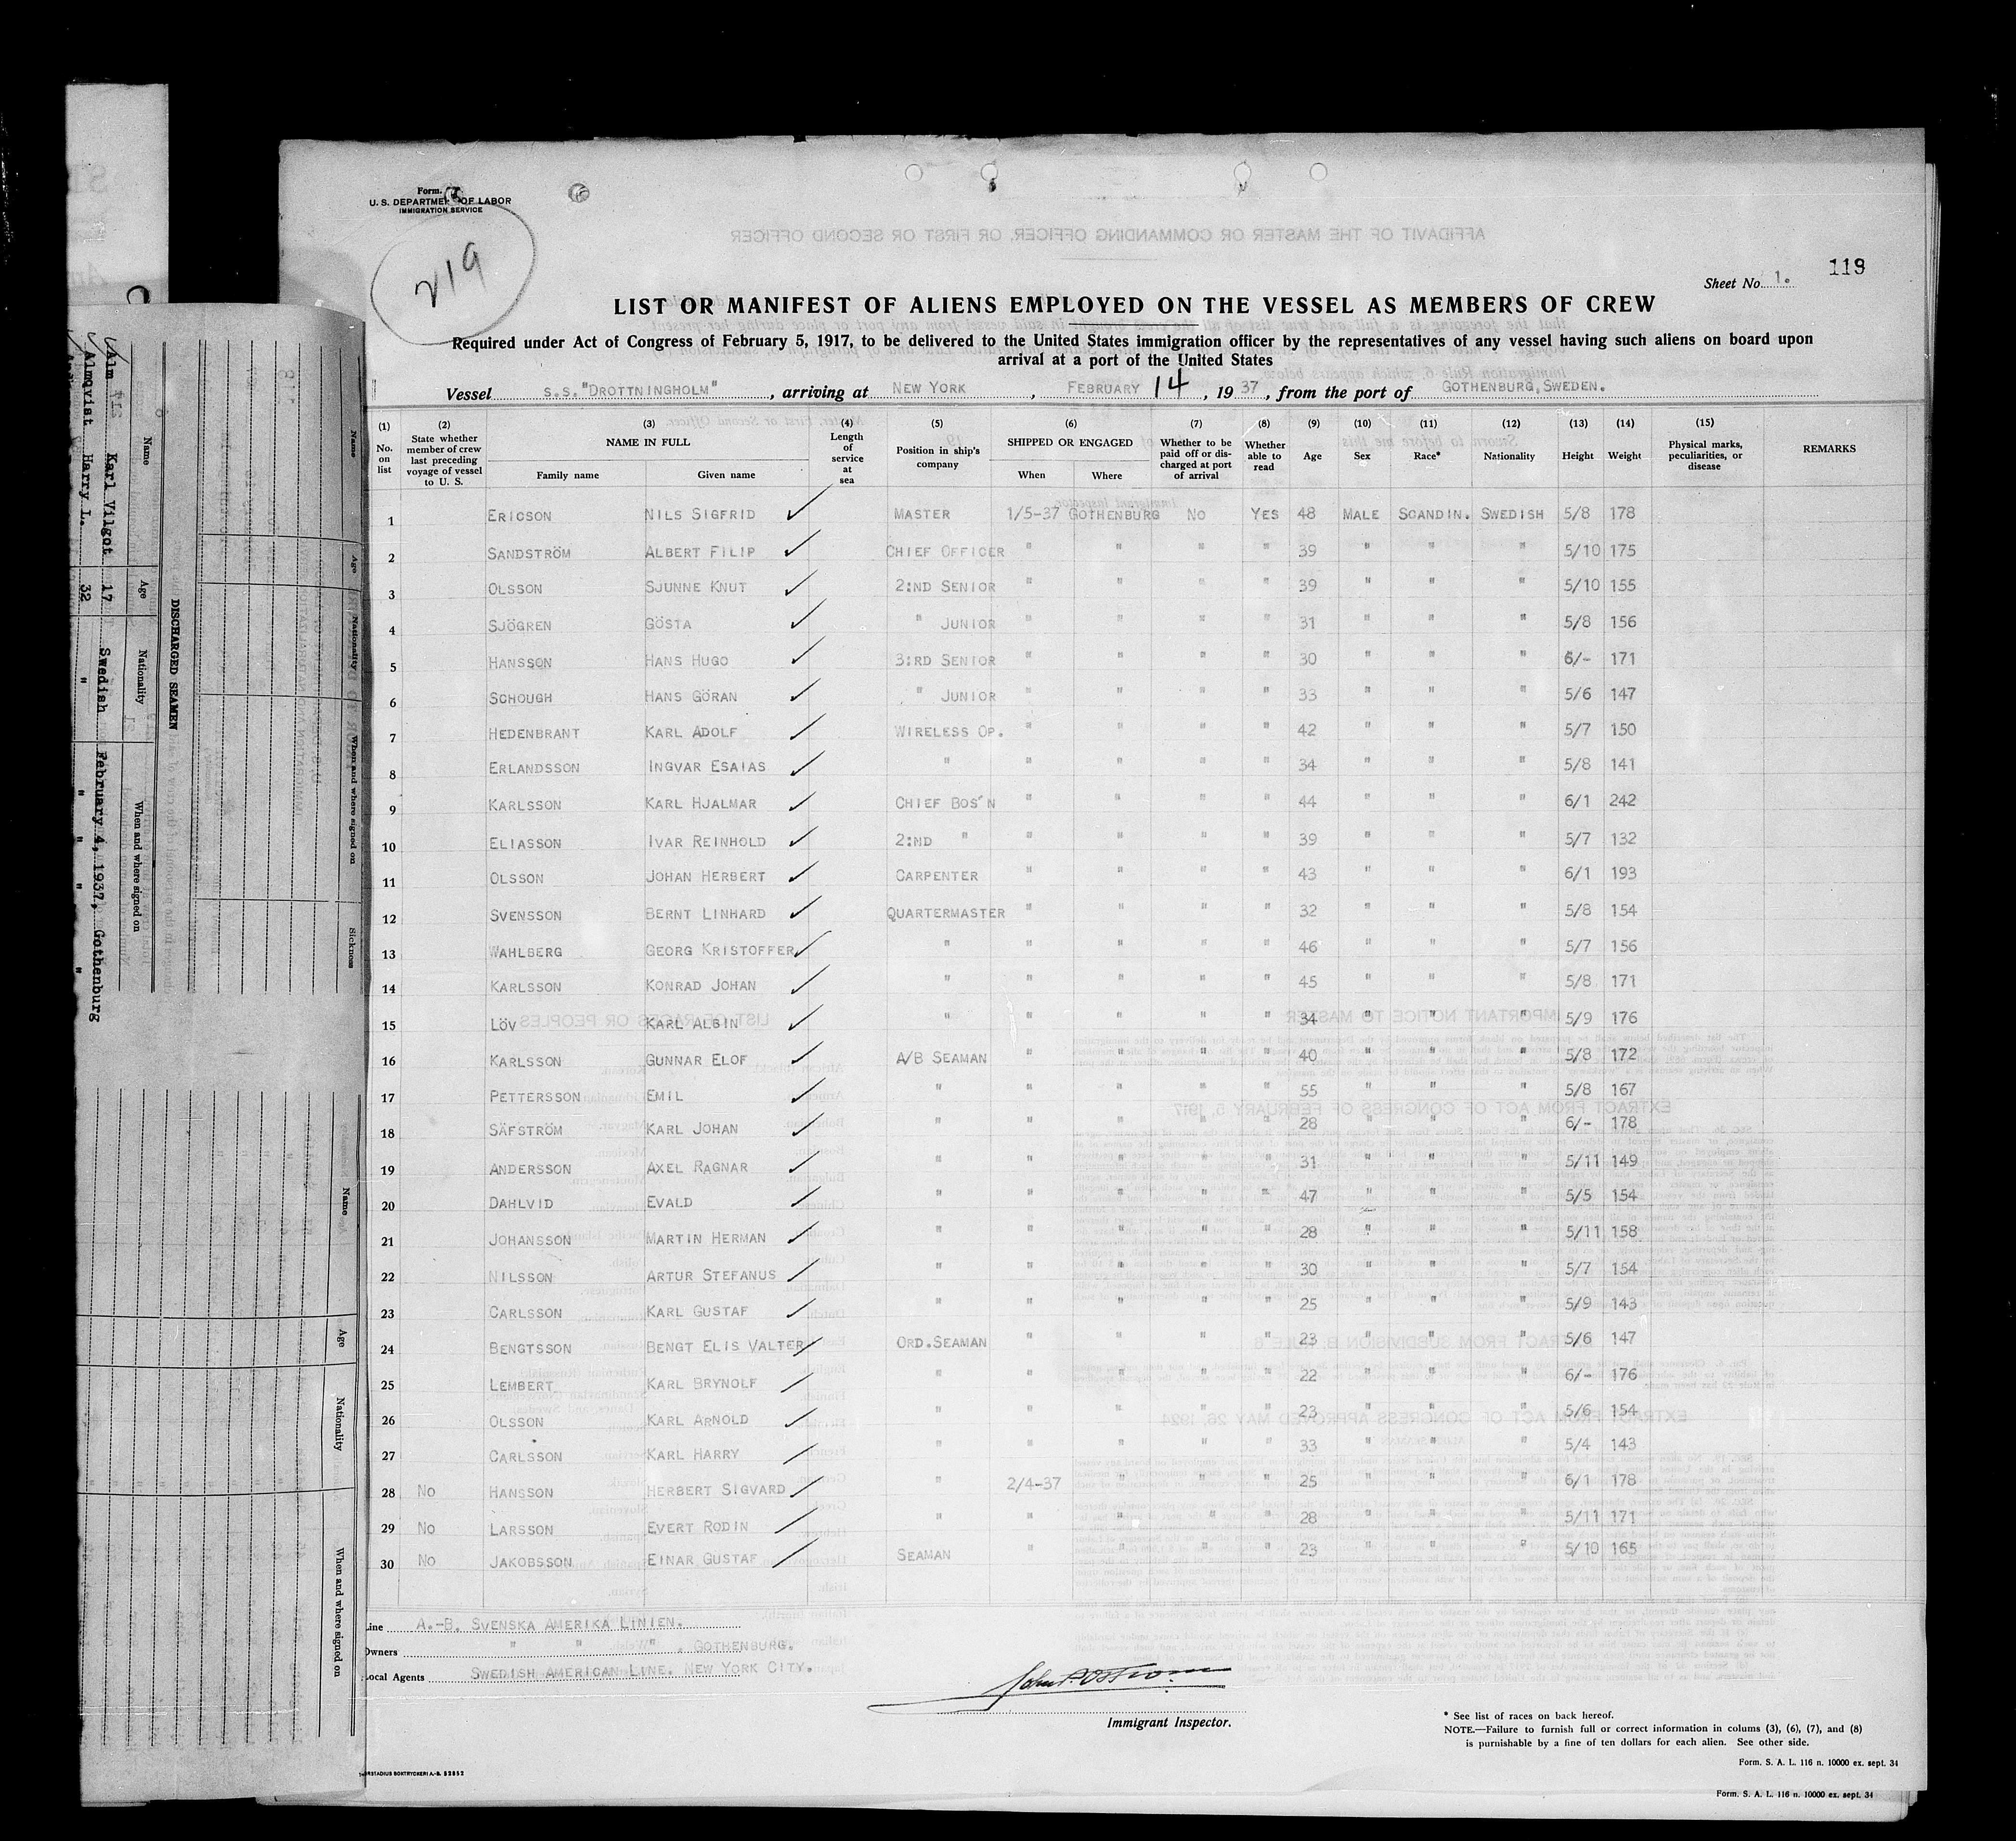 Form.
U. S. DEPARTMENT OF LABOR
IMMIGRATION SERVICE
219
Sheet No. 1.
119
LIST OR MANIFEST OF ALIENS EMPLOYED ON THE VESSEL AS MEMBERS OF CREW
Required under Act of Congress of February 5, 1917, to be delivered to the United States immigration officer by the representatives of any vessel having such aliens on board upon
arrival at a port of the United States
Vessel S.S. "DROTTNINGHOLM", arriving at NEW YORK, FEBRUARY 14, 1937, from the port of GOTHENBURG, SWEDEN.
(1) No. on list (2) State whether member of crew last preceding voyage of vessel to U. S. (3) NAME IN FULL Family name Given name (4) Length of service at sea (5) Position in ship's company (6) SHIPPED OR ENGAGED When Where (7) Whether to be paid off or discharged at port of arrival (8) Whether able to read (9) Age (10) Sex (11) Race* (12) Nationality (13) Height (14) Weight (15) Physical marks, peculiarities, or disease REMARKS
1 ERICSON NILS SIGFRID MASTER 1/5-37 GOTHENBURG NO YES 48 MALE SCANDIN. SWEDISH 5/8 178
2 SANDSTRÖM ALBERT FILIP CHIEF OFFICER " " " " 39 " " " 5/10 175
3 OLSSON SJUNNE KNUT 2:ND SENIOR " " " " 39 " " " 5/10 155
4 SJÖGREN GÖSTA " JUNIOR " " " " 31 " " " 5/8 156
5 HANSSON HANS HUGO 3:RD SENIOR " " " " 30 " " " 6/- 171
6 SCHOUGH HANS GÖRAN " JUNIOR " " " " 33 " " " 5/6 147
7 HEDENBRANT KARL ADOLF WIRELESS OP. " " " " 42 " " " 5/7 150
8 ERLANDSSON INGVAR ESAIAS " " " " " 34 " " " 5/8 141
9 KARLSSON KARL HJALMAR CHIEF BOS'N " " " " 44 " " " 6/1 242
10 ELIASSON IVAR REINHOLD 2:ND " " " " " 39 " " " 5/7 132
11 OLSSON JOHAN HERBERT CARPENTER " " " " 43 " " " 6/1 193
12 SVENSSON BERNT LINHARD QUARTERMASTER " " " " 32 " " " 5/8 154
13 WAHLBERG GEORG KRISTOFFER " " " " " 46 " " " 5/7 156
14 KARLSSON KONRAD JOHAN " " " " " 45 " " " 5/8 171
15 LÖV KARL ALBIN " " " " " 34 " " " 5/9 176
16 KARLSSON GUNNAR ELOF A/B SEAMAN " " " " 40 " " " 5/8 172
17 PETTERSSON EMIL " " " " " 55 " " " 5/8 167
18 SÄFSTRÖM KARL JOHAN " " " " " 28 " " " 6/- 178
19 ANDERSSON AXEL RAGNAR " " " " " 31 " " " 5/11 149
20 DAHLVID EVALD " " " " " 47 " " " 5/5 154
21 JOHANSSON MARTIN HERMAN " " " " " 28 " " " 5/11 158
22 NILSSON ARTUR STEFANUS " " " " " 30 " " " 5/7 154
23 CARLSSON KARL GUSTAF " " " " " 25 " " " 5/9 143
24 BENGTSSON BENGT ELIS VALTER ORD.SEAMAN " " " " 23 " " " 5/6 147
25 LEMBERT KARL BRYNOLF " " " " " 22 " " " 6/- 176
26 OLSSON KARL ARNOLD " " " " " 23 " " " 5/6 154
27 CARLSSON KARL HARRY " " " " " 33 " " " 5/4 143
28 NO HANSSON HERBERT SIGVARD " 2/4-37 " " " 25 " " " 6/1 178
29 NO LARSSON EVERT RODIN " " " " " 28 " " " 5/11 171
30 NO JAKOBSSON EINAR GUSTAF SEAMAN " " " " 23 " " " 5/10 165
Line A.-B. SVENSKA AMERIKA LINIEN.
Owners " " " . GOTHENBURG.
Local Agents SWEDISH AMERICAN LINE. NEW YORK CITY.
Immigrant Inspector.
* See list of races on back hereof.
NOTE.—Failure to furnish full or correct information in colums (3), (6), (7), and (8)
is punishable by a fine of ten dollars for each alien. See other side.
Form. S. A. L. 116 n. 10000 ex. sept. 34
Form. S. A. L. 116 n. 10000 ex. sept. 34
DISCHARGED SEAMEN
Name Age Nationality When and where signed on
Alm Karl Vilgot 17 Swedish February 4, 1937, Gothenburg
Almqvist Harry L. 32 " " " " "
Name Age Nationality When and where signed on Sickness
Name Age Nationality When and where signed on